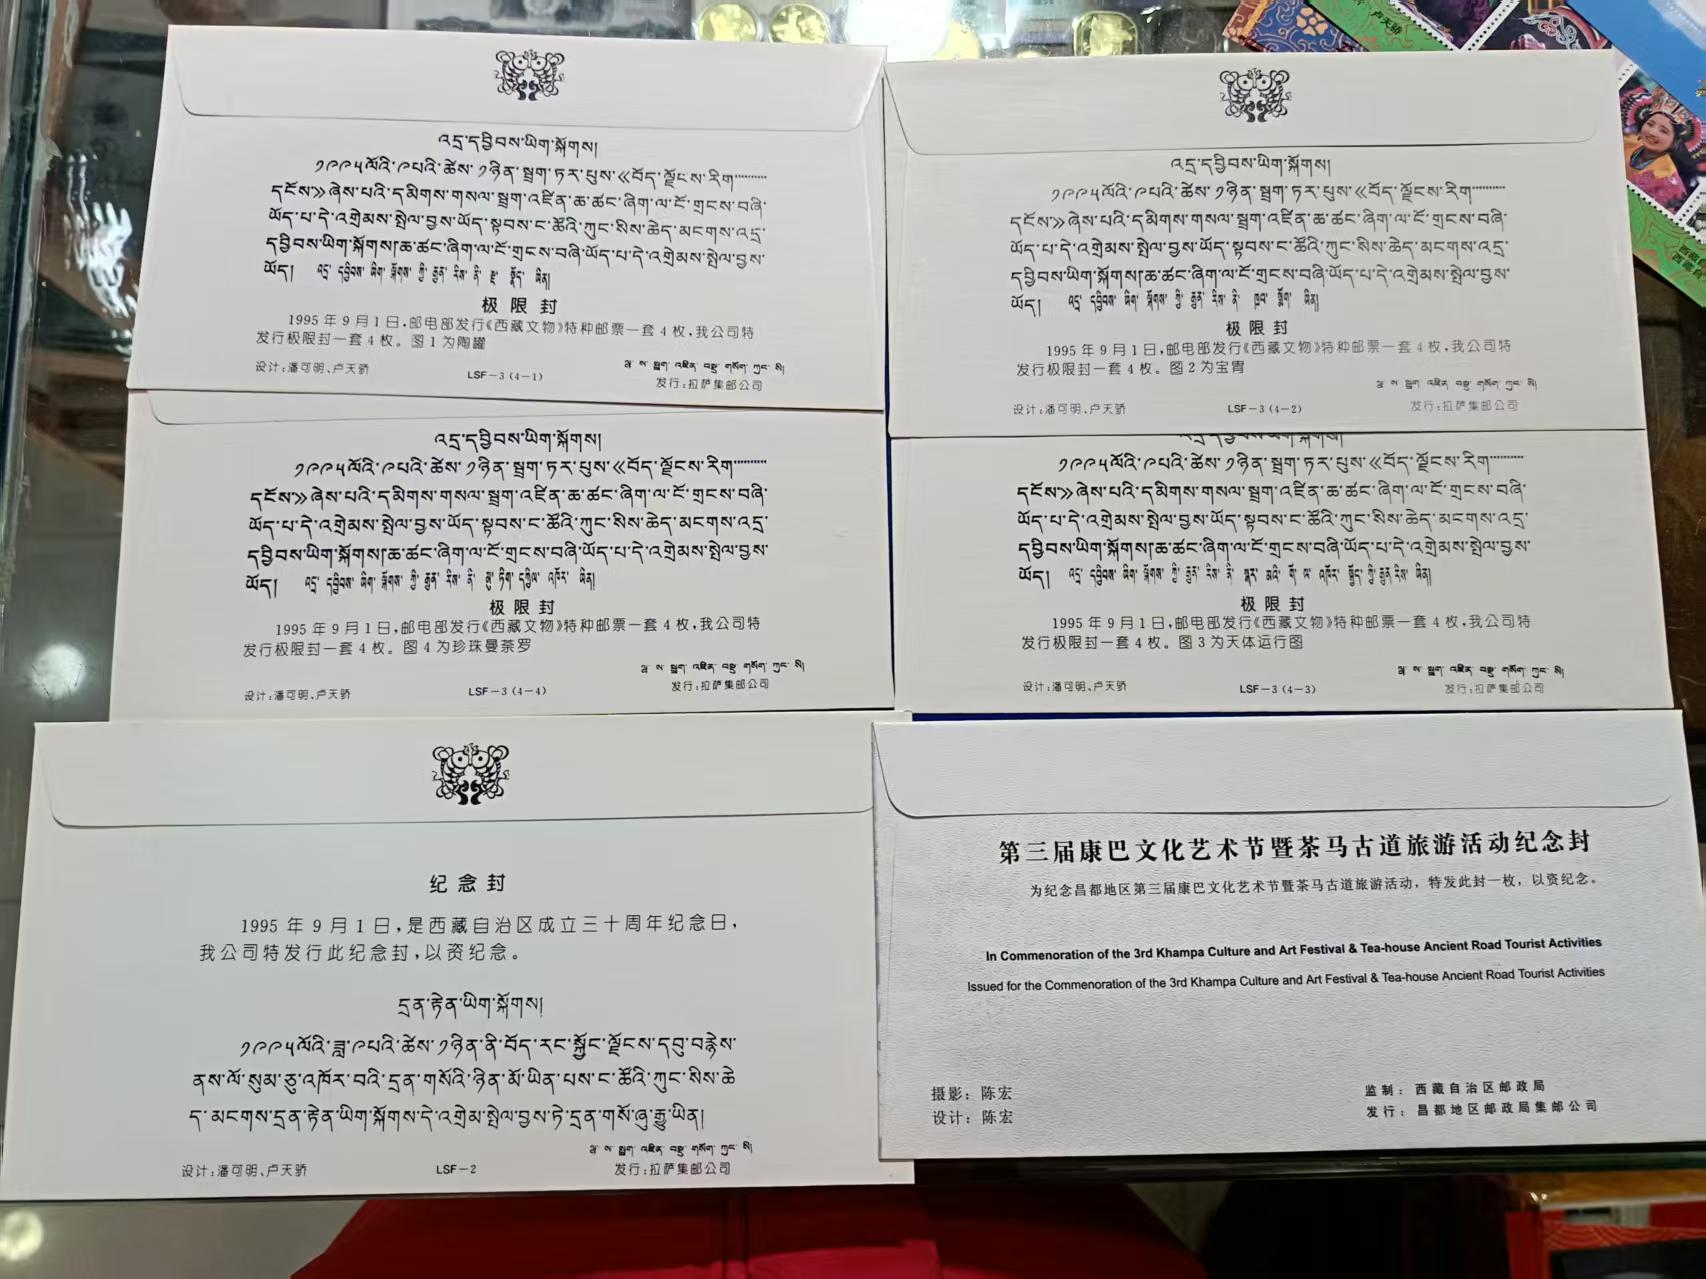 འདྲ་དབྱིབས་ཡིག་སྐོགས།
༡༩༩༥ལོའི་༩པའི་ཚེས་༡ཉིན་སྦྲག་ཏར་པུས་《བོད་ལྗོངས་རིག་
དངོས》ཞེས་པའི་དམིགས་གསལ་སྦྲག་འཛིན་ཆ་ཚང་ཞིག་ལ་ངོ་གྲངས་བཞི་
ཡོད་པ་དེ་འགྲེམས་སྤེལ་བྱས་ཡོད་སྟབས་ང་ཚོའི་ཀུང་སིས་ཆེད་མངགས་འདྲ་
དབྱིབས་ཡིག་སྐོགས།ཆ་ཚང་ཞིག་ལ་ངོ་གྲངས་བཞི་ཡོད་པ་དེ་འགྲེམས་སྤེལ་བྱས་
ཡོད། འདྲ་དབྱིབས་ཡིག་སྐོགས་ཀྱི་རྒྱན་རིས་ནི་རྫ་སྣོད་ཡིན།
极限封
1995年9月1日,邮电部发行《西藏文物》特种邮票一套4枚,我公司特
发行极限封一套4枚。图1为陶罐
ལྷ་ས་སྦྲག་འཛིན་བསྡུ་གསོག་ཀུང་སི།
设计:潘可明、卢天骄 LSF-3(4-1) 发行:拉萨集邮公司
འདྲ་དབྱིབས་ཡིག་སྐོགས།
༡༩༩༥ལོའི་༩པའི་ཚེས་༡ཉིན་སྦྲག་ཏར་པུས་《བོད་ལྗོངས་རིག་
དངོས》ཞེས་པའི་དམིགས་གསལ་སྦྲག་འཛིན་ཆ་ཚང་ཞིག་ལ་ངོ་གྲངས་བཞི་
ཡོད་པ་དེ་འགྲེམས་སྤེལ་བྱས་ཡོད་སྟབས་ང་ཚོའི་ཀུང་སིས་ཆེད་མངགས་འདྲ་
དབྱིབས་ཡིག་སྐོགས།ཆ་ཚང་ཞིག་ལ་ངོ་གྲངས་བཞི་ཡོད་པ་དེ་འགྲེམས་སྤེལ་བྱས་
ཡོད། འདྲ་དབྱིབས་ཡིག་སྐོགས་ཀྱི་རྒྱན་རིས་ནི་ཁྲབ་རྨོག་ཡིན།
极限封
1995年9月1日,邮电部发行《西藏文物》特种邮票一套4枚,我公司特
发行极限封一套4枚。图2为宝胄
ལྷ་ས་སྦྲག་འཛིན་བསྡུ་གསོག་ཀུང་སི།
设计:潘可明、卢天骄 LSF-3(4-2) 发行:拉萨集邮公司
འདྲ་དབྱིབས་ཡིག་སྐོགས།
༡༩༩༥ལོའི་༩པའི་ཚེས་༡ཉིན་སྦྲག་ཏར་པུས་《བོད་ལྗོངས་རིག་
དངོས》ཞེས་པའི་དམིགས་གསལ་སྦྲག་འཛིན་ཆ་ཚང་ཞིག་ལ་ངོ་གྲངས་བཞི་
ཡོད་པ་དེ་འགྲེམས་སྤེལ་བྱས་ཡོད་སྟབས་ང་ཚོའི་ཀུང་སིས་ཆེད་མངགས་འདྲ་
དབྱིབས་ཡིག་སྐོགས།ཆ་ཚང་ཞིག་ལ་ངོ་གྲངས་བཞི་ཡོད་པ་དེ་འགྲེམས་སྤེལ་བྱས་
ཡོད། འདྲ་དབྱིབས་ཡིག་སྐོགས་ཀྱི་རྒྱན་རིས་ནི་མུ་ཏིག་དཀྱིལ་འཁོར་ཡིན།
极限封
1995年9月1日,邮电部发行《西藏文物》特种邮票一套4枚,我公司特
发行极限封一套4枚。图4为珍珠曼荼罗
ལྷ་ས་སྦྲག་འཛིན་བསྡུ་གསོག་ཀུང་སི།
设计:潘可明、卢天骄 LSF-3(4-4) 发行:拉萨集邮公司
འདྲ་དབྱིབས་ཡིག་སྐོགས།
༡༩༩༥ལོའི་༩པའི་ཚེས་༡ཉིན་སྦྲག་ཏར་པུས་《བོད་ལྗོངས་རིག་
དངོས》ཞེས་པའི་དམིགས་གསལ་སྦྲག་འཛིན་ཆ་ཚང་ཞིག་ལ་ངོ་གྲངས་བཞི་
ཡོད་པ་དེ་འགྲེམས་སྤེལ་བྱས་ཡོད་སྟབས་ང་ཚོའི་ཀུང་སིས་ཆེད་མངགས་འདྲ་
དབྱིབས་ཡིག་སྐོགས།ཆ་ཚང་ཞིག་ལ་ངོ་གྲངས་བཞི་ཡོད་པ་དེ་འགྲེམས་སྤེལ་བྱས་
ཡོད། འདྲ་དབྱིབས་ཡིག་སྐོགས་ཀྱི་རྒྱན་རིས་ནི་སྐར་མའི་གོ་ལ་འཁོར་སྐྱོད་ཀྱི་རྒྱན་རིས་ཡིན།
极限封
1995年9月1日,邮电部发行《西藏文物》特种邮票一套4枚,我公司特
发行极限封一套4枚。图3为天体运行图
ལྷ་ས་སྦྲག་འཛིན་བསྡུ་གསོག་ཀུང་སི།
设计:潘可明、卢天骄 LSF-3(4-3) 发行:拉萨集邮公司
纪念封
1995年9月1日,是西藏自治区成立三十周年纪念日,
我公司特发行此纪念封,以资纪念。
དྲན་རྟེན་ཡིག་སྐོགས།
༡༩༩༥ལོའི་ཟླ་༩པའི་ཚེས་༡ཉིན་ནི་བོད་རང་སྐྱོང་ལྗོངས་དབུ་བརྙེས་
ནས་ལོ་སུམ་ཅུ་འཁོར་བའི་དྲན་གསོའི་ཉིན་མོ་ཡིན་པས་ང་ཚོའི་ཀུང་སིས་ཆེ
ད་མངགས་དྲན་རྟེན་ཡིག་སྐོགས་དེ་འགྲེམ་སྤེལ་བྱས་ཏེ་དྲན་གསོ་ཞུ་རྒྱུ་ཡིན།
ལྷ་ས་སྦྲག་འཛིན་བསྡུ་གསོག་ཀུང་སི།
设计:潘可明、卢天骄 LSF-2 发行:拉萨集邮公司
第三届康巴文化艺术节暨茶马古道旅游活动纪念封
为纪念昌都地区第三届康巴文化艺术节暨茶马古道旅游活动，特发此封一枚，以资纪念。
In Commenoration of the 3rd Khampa Culture and Art Festival & Tea-house Ancient Road Tourist Activities
Issued for the Commenoration of the 3rd Khampa Culture and Art Festival & Tea-house Ancient Road Tourist Activities
摄影：陈宏
设计：陈宏
监制：西藏自治区邮政局
发行：昌都地区邮政局集邮公司
卢天骄